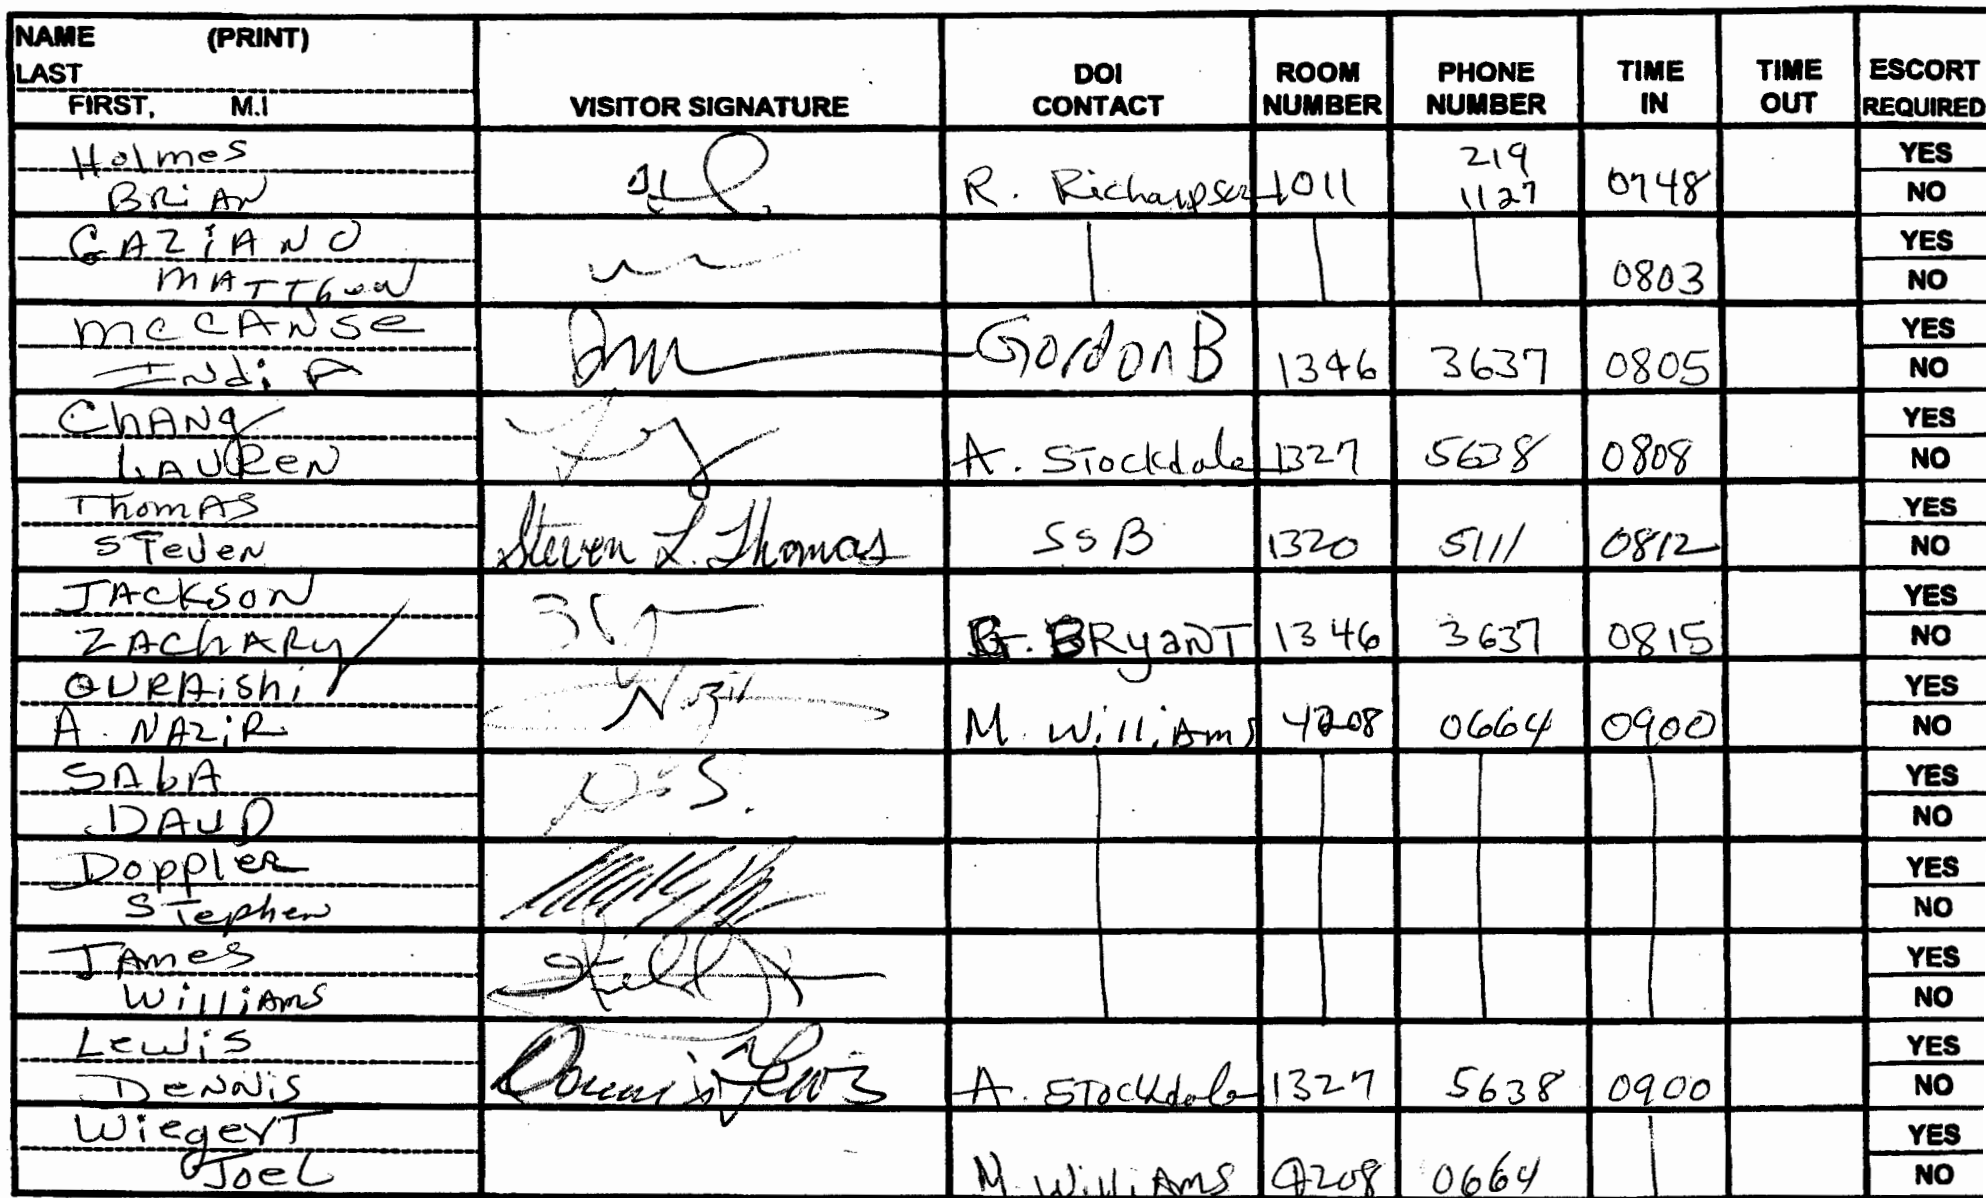 NAME (PRINT)
LAST
FIRST, M.I
VISITOR SIGNATURE
DOI CONTACT
ROOM NUMBER
PHONE NUMBER
TIME IN
TIME OUT
ESCORT REQUIRED
Holmes
BRiAN
R. Richardson 1011 219 1127 0748 YES NO
GAZiANO
MATTHew
0803 YES NO
McCANSe
INdiA
Gordon B 1346 3637 0805 YES NO
ChANg
LAUReN
A. Stockdale 1327 5638 0808 YES NO
ThomAS
STeven
Steven L. Thomas SSB 1320 5111 0812 YES NO
JACKSON
ZAChARy
G. BRyaNT 1346 3637 0815 YES NO
QURAishi
A. NAZiR
Nazir M. WilliAms 4208 0664 0900 YES NO
SAbA
DAUD
D. S. YES NO
DoppleR
STephen
YES NO
JAmes
WilliAms
YES NO
Lewis
DeNNis
Dennis Lewis A. STockdale 1327 5638 0900 YES NO
WiegerT
Joel
M. WilliAms 4208 0664 YES NO